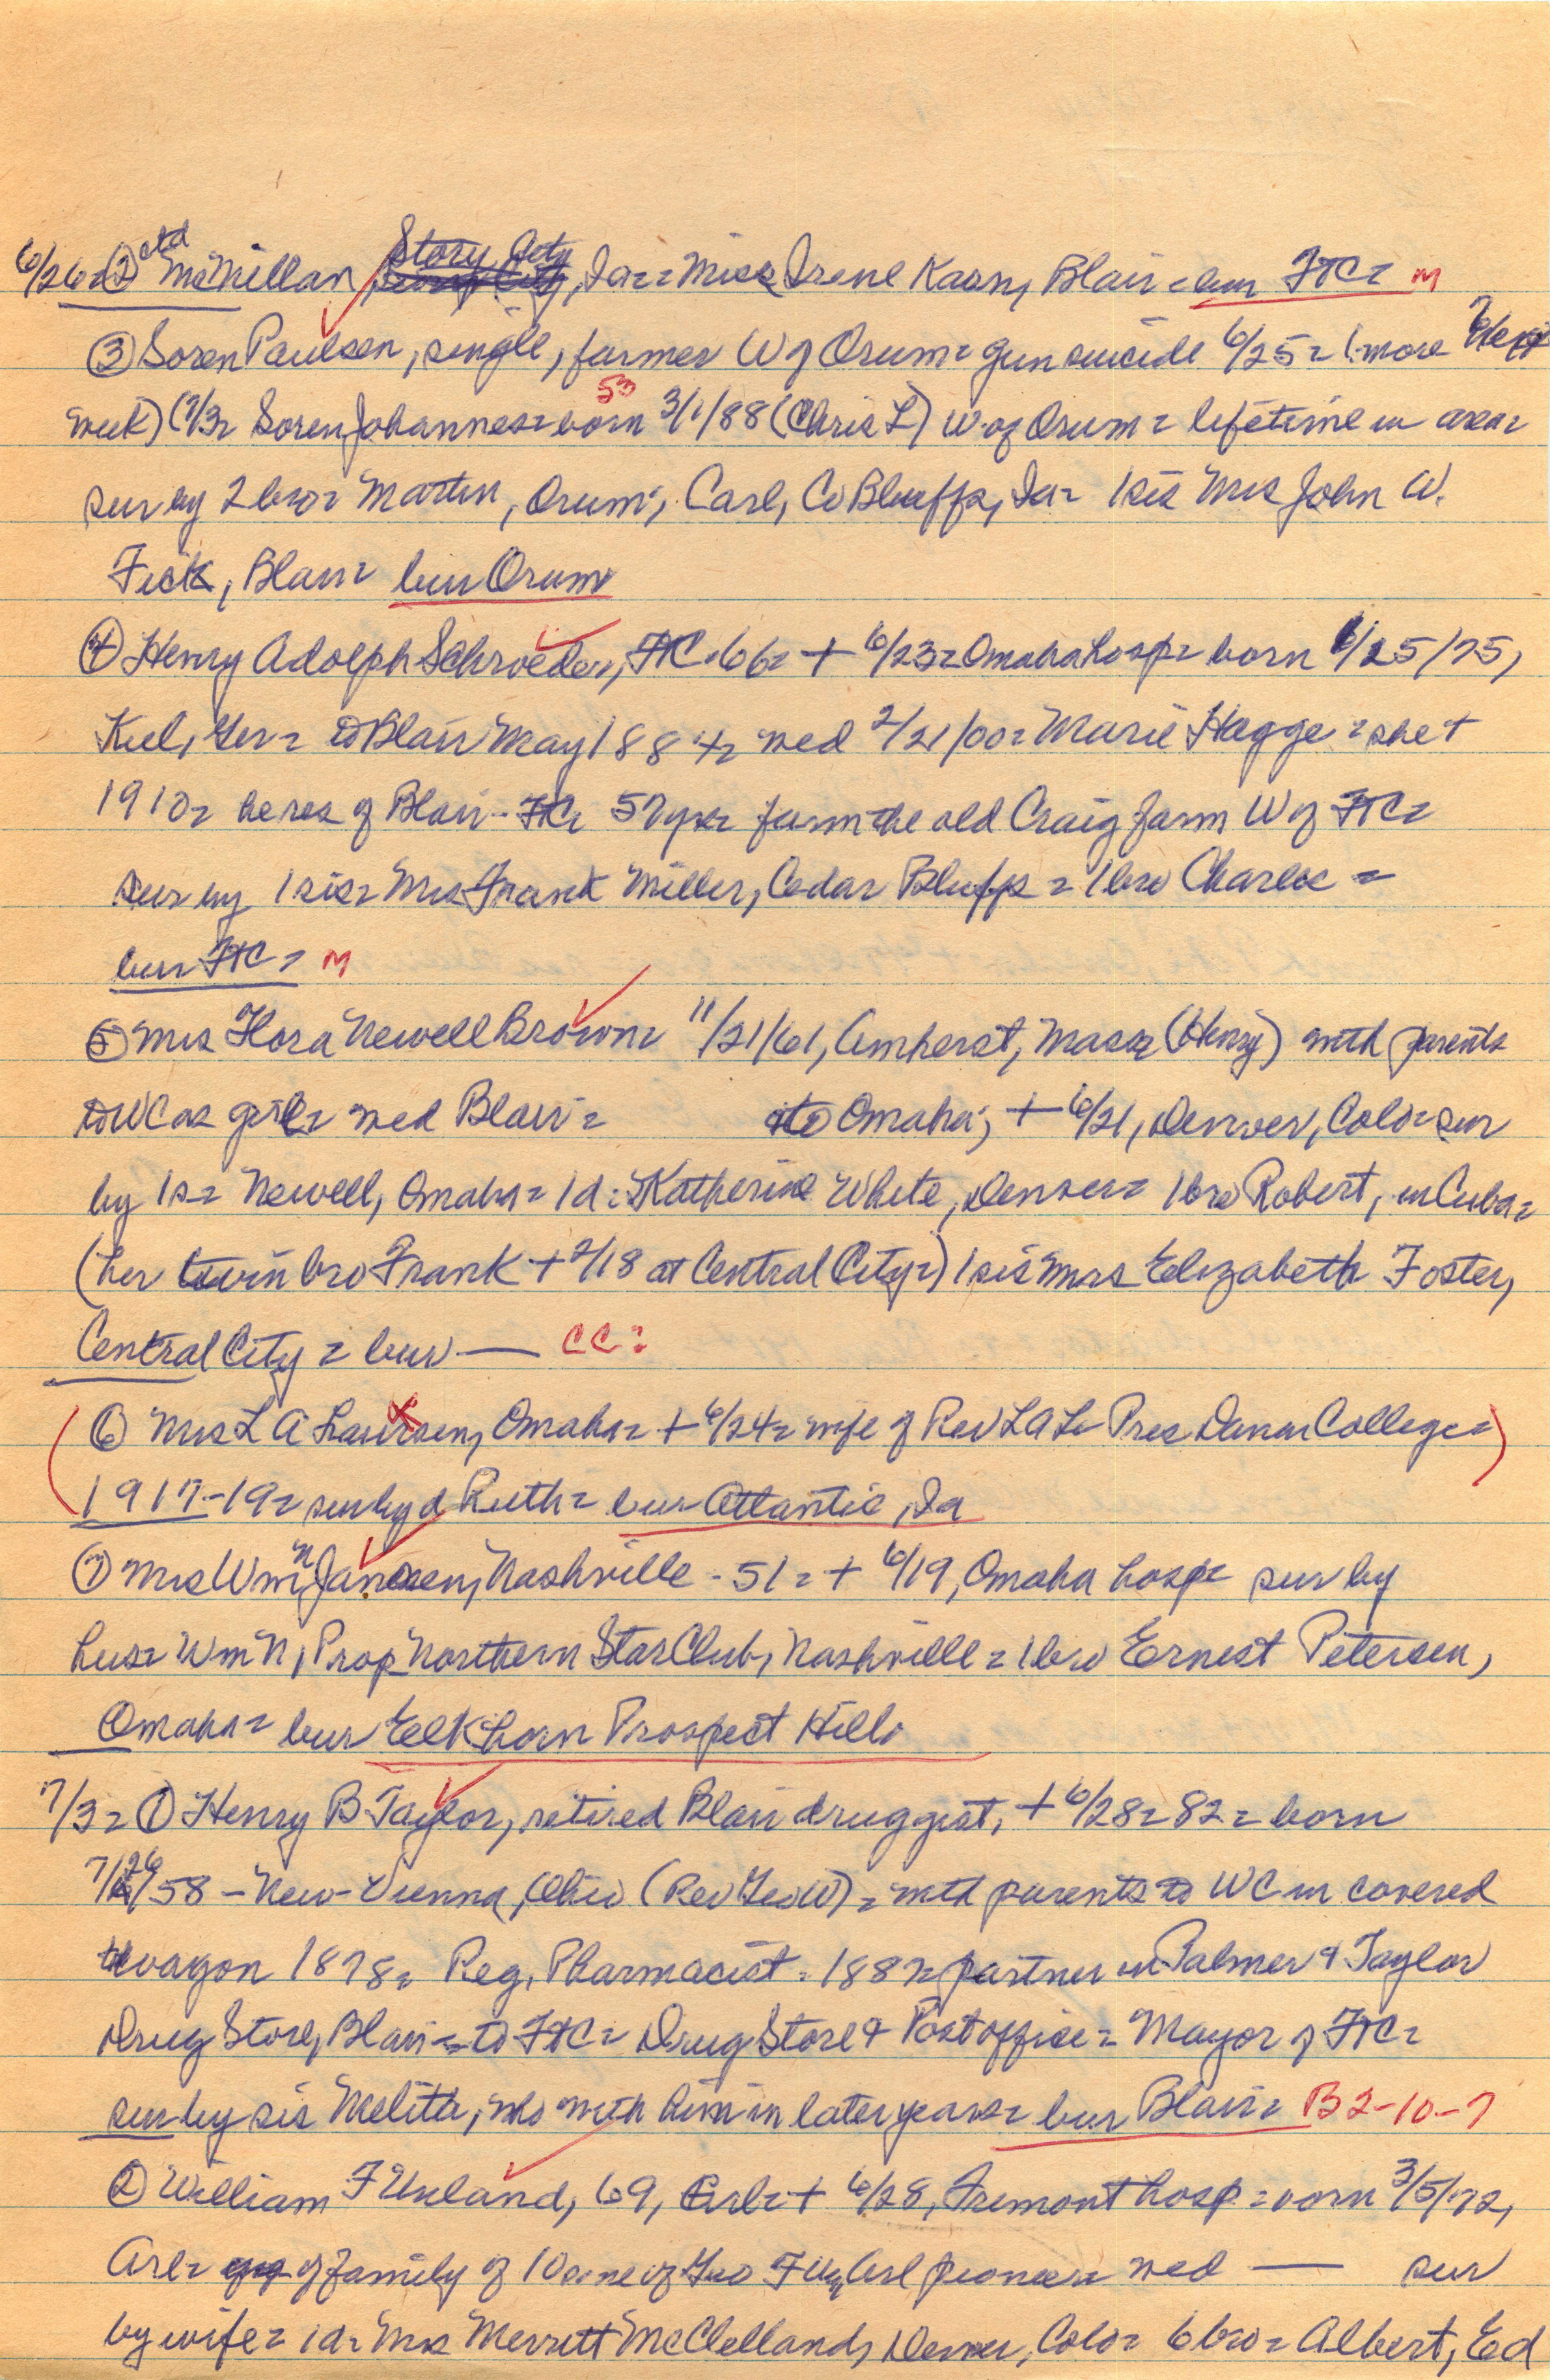 6/26= ② ctd McMillan, Story City, Ia== Miss Irene Kaan, Blair= bur FTC= M
③ Soren Paulsen, single, farmer W of Orum= gun suicide 6/25= (more next
week) (7/3= Soren Johannes= 53 born 3/1/88 (Chris L) W of Orum= lifetime in area=
sur by 2 bro= Martin, Orum; Carl, Co Bluffs, Ia= 1 sis Mrs John W.
Fick, Blair= bur Orum
④ Henry Adolph Schroeder, FTC- 66= + 6/23= Omaha hosp= born 1/25/75,
Kiel, Ger= to Blair May 1884= wed 2/21/00= Marie Hagge= she +
1910= he res of Blair- FTC= 57 yrs= farm the old Craig farm W of FTC=
sur by 1 sis= Mrs Frank Miller, Cedar Bluffs= 1 bro Charles=
bur FTC= M
⑤ Mrs Flora Newell Brown= 11/21/61, Amherst, Mass= (Henry) with parents
to WC as girl= wed Blair= to Omaha; + 6/21, Denver, Colo= sur
by 1 s= Newell, Omaha= 1 d: Katherine White, Denver= 1 bro Robert, in Cuba=
(her twin bro Frank + 2/18 at Central City=) 1 sis Mrs Elizabeth Foster,
Central City= bur — CC:
(⑥ Mrs L A Laursen, Omaha= + 6/24= wife of Rev L A L- Pres Dana College=)
1917-19= sur by d Ruth= bur Atlantic, Ia
⑦ Mrs Wm N Jansen, Nashville- 51= + 6/19, Omaha hosp= sur by
hus= Wm N, Prop Northern Star Club, Nashville= 1 bro Ernest Petersen,
Omaha= bur Elkhorn Prospect Hill.
7/3= ① Henry B Taylor, retired Blair druggist, + 6/28= 82= born
7/26/58 - New Vienna, Ohio (Rev Geo W)= with parents to WC in covered
wagon 1878= Reg. Pharmacist. 1882= partner in Palmer & Taylor
Drug Store, Blair= to FTC= Drug Store & Postoffice= Mayor of FTC=
sur by sis Melitta, who with him in later years= bur Blair= B2-10-7
② William F Unland, 69, Arl= + 6/28, Fremont hosp= born 3/5/72,
Arl= of family of 10= ne of Geo F U, Arl pioneer= wed — sur
by wife= 1 d= Mrs Merritt McClelland, Denver, Colo= 6 bro= Albert, Ed